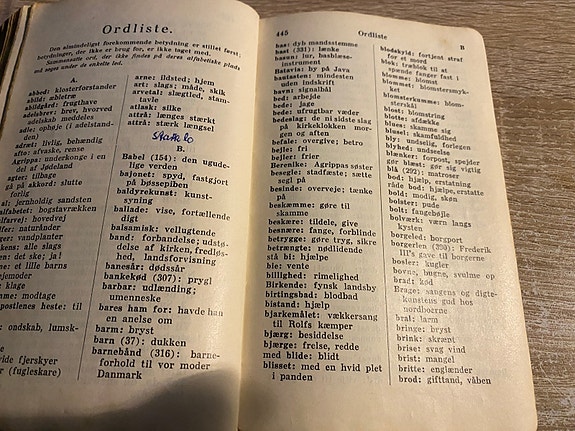 Ordliste.
Den almindeligt forekommende betydning er stillet først;
betydninger, der ikke er brug for, er ikke taget med.
Sammensatte ord, der ikke findes på deres alfabetiske plads
må søges under de enkelte led.
A.
abbed: klosterforstander
abild: æbletræ
abildgård: frugthave
adelsbrev: brev, hvorved
adelskab meddeles
adle; ophøje (i adelstand-
den)
adræt: livlig, behændig
afto: afvaske, rense
Agrippa: underkonge i en
del af Jødeland
agter: tilbage
gå på akkord: slutte
forlig
al: jernholdig sandsten
alfabetet: bogstavrækken
alfarvej: hovedvej
fer: naturånder
ger: vandplanter
kens: alle slags
en: det ske; ja!
e: et lille barns
ejemoder
klage
amme: modtage
postlenes heste: til
: ondskab, lumsk-
e
vide fjerskyer
r (fugleskare)
arne: ildsted; hjem
art: slags; måde, skik
arvetal: slægtled, stam-
tavle
atlask: silke
attrå: længes stærkt
attrå: stærk længsel
B.
Babel (154): den ugude-
lige verden
bajonet: spyd, fastgjort
på bøssepiben
baldyrekunst: kunst-
syning
ballade: vise, fortællende
digt
balsamisk: vellugtende
band: forbandelse; udstø-
delse af kirken, fredløs-
hed, landsforvisning
banesår: dødssår
bankekød (307): prygl
barbar: udlænding;
umenneske
bares ham for: havde han
en anelse om
barm: bryst
barn (37): dukken
barnebånd (316): barne-
forhold til vor moder
Danmark
445
Ordliste
B
bas: dyb mandsstemme
bast (331): lænke
basun: lur, hasblæse-
instrument
Batavia: by på Java
bautasten: mindesten
uden indskrift
bavn: signalbål
bed: arbejde
bede: jage
bede: ufrugtbar væder
bedeslag: de ni sidste slag
på kirkeklokken mor-
gen og aften
befale: overgive; betro
bejle: fri
bejler: frier
Berenike: Agrippas søster
besegle: stadfæste; sætte
segl på
besinde: overveje; tænke
på
beskæmme: gøre til
skamme
beskære: tildele, give
besnære: fange, forblinde
betrygge: gøre tryg, sikre
betrængte: nødlidende
stå bi: hjælpe
bie: vente
billighed: rimelighed
Birkende: fynsk landsby
birtingsbad: blodbad
bistand: hjælp
bjarkemålet: vækkersang
til Rolfs kæmper
bjærg: besiddelse
bjærge: frelse, redde
med blide: blidt
blisset: med en hvid plet
i panden
blodskyld: fortjent straf
for et mord
blok: træblok til at
spænde fanger fast i
blommet: blomstret
blomster: blomstersmyk-
ket
blomsterkumme: blom-
sterskål
blost: blomstring
blotte: afdække
blues: skamme sig
blusel: skamfuldhed
bly: undselig, forlegen
blyhed: undseelse
blænker: forpost, spejder
gør blæst: gør sig vigtig
blå (292): matroser
bod: hjælp, erstatning
råde bod: hjælpe, erstatte
bold: modig, skøn
bolster: pude
bolt: fangebøjle
bolværk: værn langs
kysten
borgeled: borgport
borgerlen (390): Frederik
III's gave til borgerne
bosler: kugler
bovne: bugne, svulme op
brad: kød
Brage: sangens og digte-
kunstens gud hos
nordboerne
bral: larm
bringe: bryst
brink: skrænt
brise: svag vind
brist: mangel
britte: englænder
brod: gifttand, våben